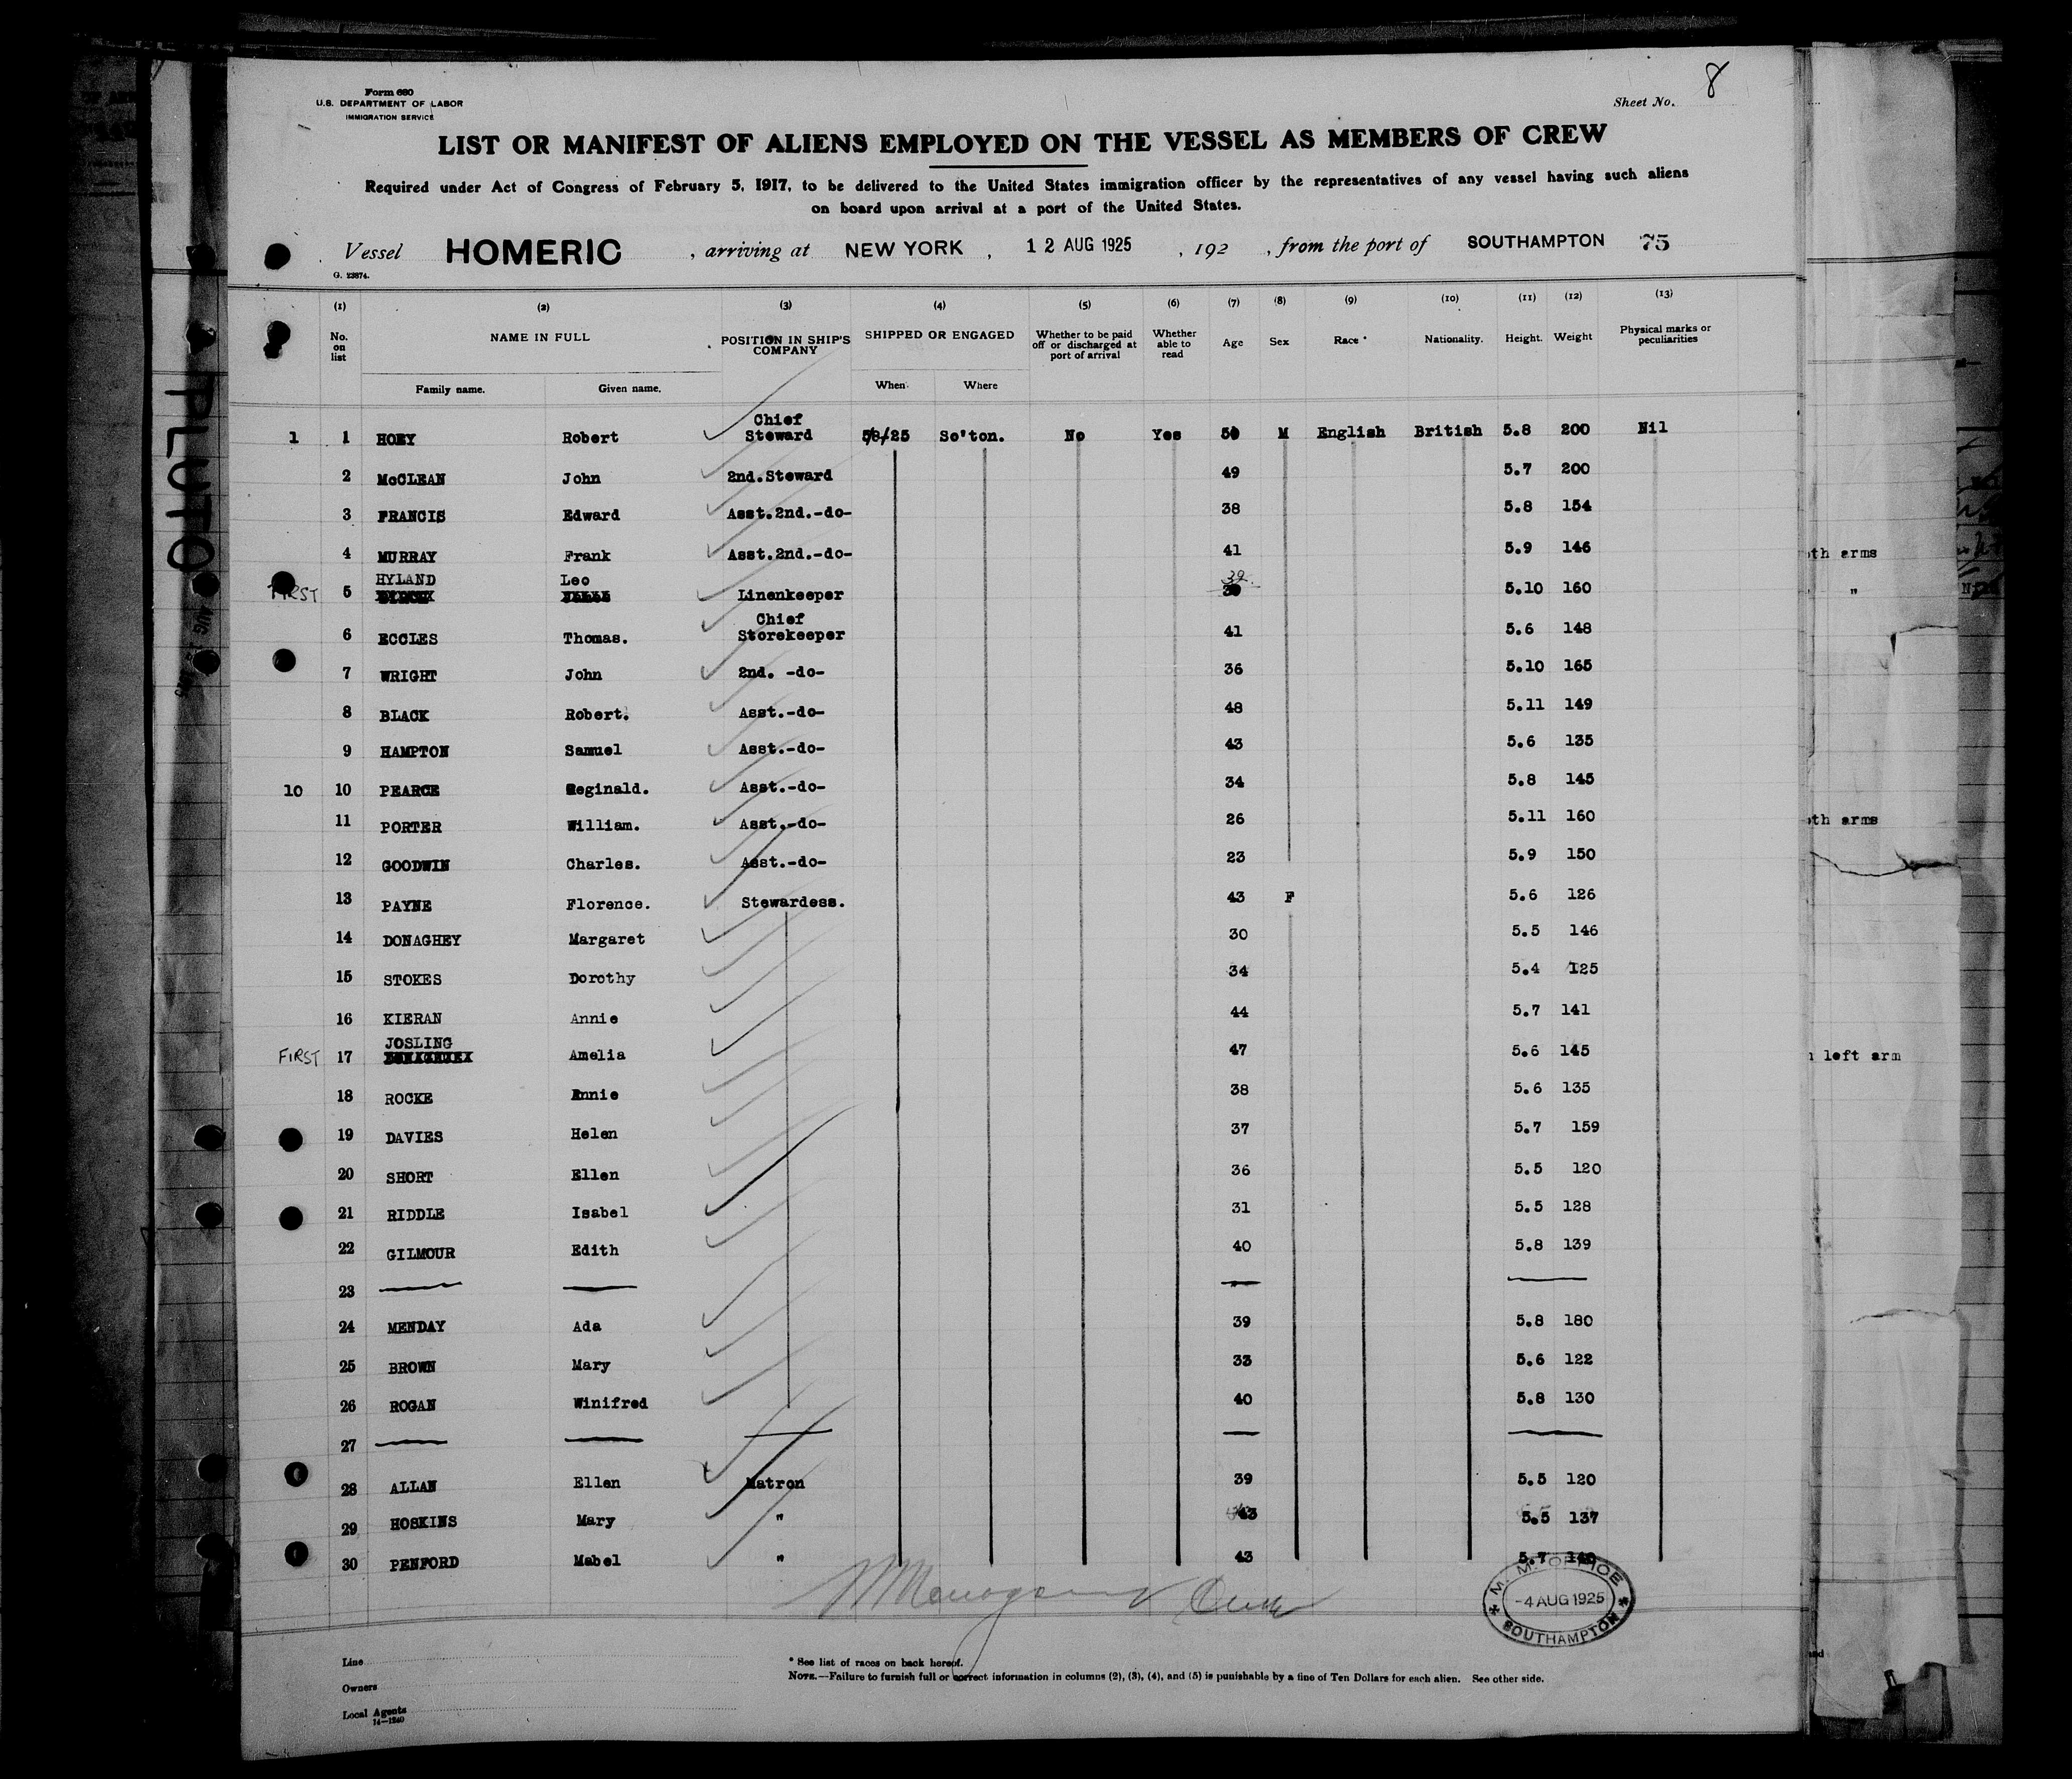 8
Form 680
U.S. DEPARTMENT OF LABOR
IMMIGRATION SERVICE
Sheet No.
LIST OR MANIFEST OF ALIENS EMPLOYED ON THE VESSEL AS MEMBERS OF CREW
Required under Act of Congress of February 5, 1917, to be delivered to the United States immigration officer by the representatives of any vessel having such aliens
on board upon arrival at a port of the United States.
Vessel HOMERIC , arriving at NEW YORK , 12 AUG 1925 , 192 , from the port of SOUTHAMPTON 75
G. 23874.
(1) (2) (3) (4) (5) (6) (7) (8) (9) (10) (11) (12) (13)
No. on list NAME IN FULL POSITION IN SHIP'S COMPANY SHIPPED OR ENGAGED Whether to be paid off or discharged at port of arrival Whether able to read Age Sex Race * Nationality. Height. Weight Physical marks or peculiarities
Family name. Given name. When Where
1 1 HOEY Robert Chief Steward /25 So'ton. No Yes M English British 5.8 200 Nil
2 McCLEAN John 2nd.Steward 49 5.7 200
3 FRANCIS Edward Asst.2nd.-do- 38 5.8 154
4 MURRAY Frank Asst.2nd.-do- 41 5.9 146
FIRST 5 HYLAND Leo Linenkeeper 39 5.10 160
6 ECCLES Thomas. Chief Storekeeper 41 5.6 148
7 WRIGHT John 2nd. -do- 36 5.10 165
8 BLACK Robert. Asst.-do- 48 5.11 149
9 HAMPTON Samuel Asst.-do- 43 5.6 135
10 10 PEARCE Reginald. Asst.-do- 34 5.8 145
11 PORTER William. Asst.-do- 26 5.11 160
12 GOODWIN Charles. Asst.-do- 23 5.9 150
13 PAYNE Florence. Stewardess. 43 F 5.6 126
14 DONAGHEY Margaret 30 5.5 146
15 STOKES Dorothy 34 5.4 125
16 KIERAN Annie 44 5.7 141
FIRST 17 JOSLING Amelia 47 5.6 145
18 ROCKE Annie 38 5.6 135
19 DAVIES Helen 37 5.7 159
20 SHORT Ellen 36 5.5 120
21 RIDDLE Isabel 31 5.5 128
22 GILMOUR Edith 40 5.8 139
23
24 MENDAY Ada 39 5.8 180
25 BROWN Mary 33 5.6 122
26 ROGAN Winifred 40 5.8 130
27
28 ALLAN Ellen Matron 39 5.5 120
29 HOSKINS Mary " 43 5.5 137
30 PENFORD Mabel " 43 5.7 140
M. M. OFFICE
-4 AUG 1925
SOUTHAMPTON
Line
Owners
Local Agents
14—1240
* See list of races on back hereof.
NOTE.—Failure to furnish full or correct information in columns (2), (3), (4), and (5) is punishable by a fine of Ten Dollars for each alien. See other side.
PLUTO
AUG
arms
"
arms
left arm